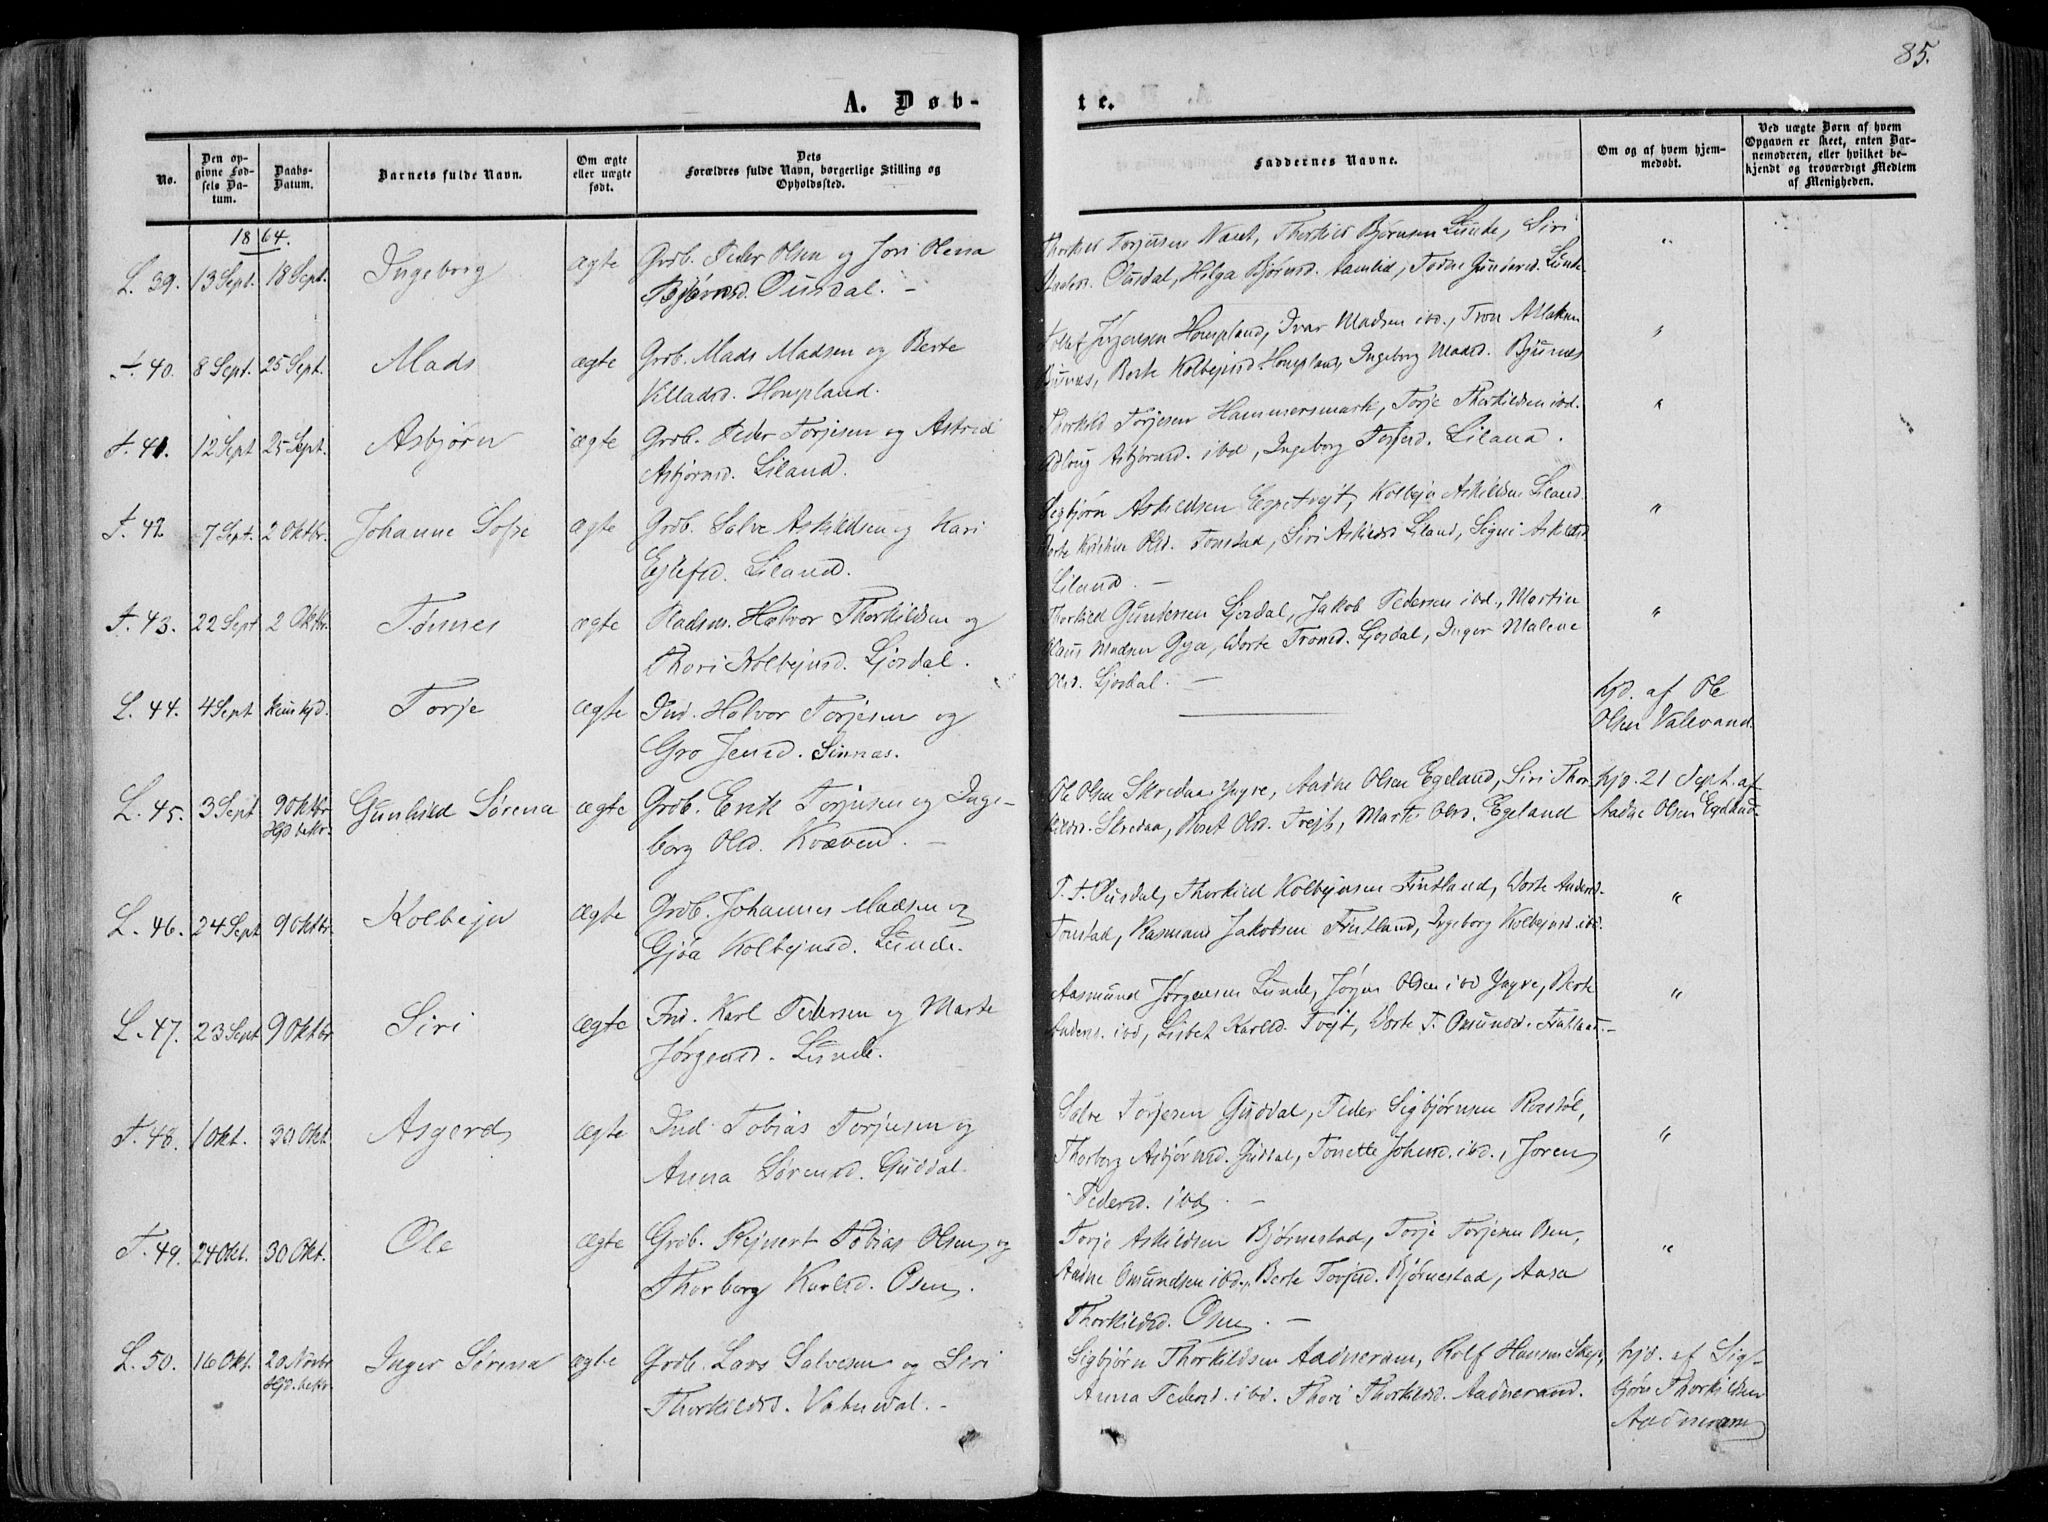 85.
A. Døb-
te.
No.
Den op-
givne Fød-
sels Da-
tum.
Daabs-
Datum.
Barnets fulde Navn.
Om ægte
eller uægte
født.
Dets
Forældres fulde Navn, borgerlige Stilling og
Opholdssted.
Faddernes Navne.
Om og af hvem hjem-
medøbt.
Ved uægte Børn af hvem
Opgaven er skeet, enten Bar-
nemoderen, eller hvilket be-
kjendt og troværdigt Medlem
af Menigheden.
1864.
L. 39. 13 Sept. 18 Sept. Ingeborg ægte Grdb. Peder Olsen og Jori Olena
Bjørnsd. Ousdal. —
Torjusen Thorkild Bjørnsen Lunde, Siri
Anders. Ousdal, Helga Bjørnsd. Tone Gundersd. Lunde "
F. 40. 8 Sept. 25 Sept. Mads ægte Grdb. Mads Madsen og Berte
Villadsd. Hompland.
Tollef Jørgensen Hompland, Ivar Madsen ibd., Tron Aslaksen
Bjunes, Berte Kolbejnsd. Hompland, Ingeborg Madsd. Bjunes "
F. 41. 12 Sept 25 Sept. Asbjørn ægte Grdb. Peder Torjesen og Astrid
Asbjørnsd. Liland.
Thorkild Torjesen Hammersmark, Torje Thorkildsen ibd.
Asbjørnsd. ibd, Ingeborg Torjesd. Liland. "
F. 42 7 Sept. 2 Oktbr. Johanne Sofie ægte Grdb. Salve Askildsen og Kari
Ejlefsd. Liland.
Sigbjørn Askildsen Egnetvejt, Kolbejn Askildsen Liland
Dorte Kristine Olsd. Tonstad, Siri Askildsd Liland, Signe Askildsd
Liland. — "
F. 43. 22 Sept 2 Oktbr. Tønnes ægte Pladsm. Halvor Thorkildsen og
Thori Kolbejnsd. Ljosdal.
Thorkild Gundersen Ljosdal, Jakob Pedersen ibd., Martin
Claus Madsen Gya, Dorte Tronsd. Ljosdal, Inger Malene
Olsd. Ljosdal. — "
L. 44. 4 Sept Kun hjd. Torje ægte Ind. Halvor Torjesen og
Gro Jensd. Sinnæs.
hjd. af Ole
Olsen Valevand.
L. 45. 3 Sept 9 Oktbr Gunhild Sørena ægte Grdb. Erik Torjusen og Inge-
Hjd. bekr. borg Olsd. Kvæven. —
Ole Olsen Skredaa Yngre, Aadne Olsen Egeland, Siri Thor-
kildsd. Skredaa, Olsd. Tvejt, Marte Olsd. Egeland
hjd. 21 Sept. af
Aadne Olsen Egeland
L. 46. 24 Sept 9 Oktbr Kolbejn ægte Grdb. Johannes Madsen og
Gjøa Kolbejnsd. Lunde.
T. T. Ousdal, Thorkild Kolbejnsen Fintland, Dorte Andersd.
Tonstad, Rasmus Jakobsen Fintland, Ingeborg Kolbejnsd. ibd. "
L. 47. 23 Sept 9 Oktbr Siri ægte Ind. Karl Pedersen og Marte
Jørgensd. Lunde.
Aasmund Jørgensen Lunde, Jørgen Olsen ibd Yngre, Berte
Andersd. ibd, Lisbet Karlsd. Tvejt, Dorte T. Omundsd. Fintland. — "
F. 48. 1 Okt. 30 Okt. Asgerd ægte Ind. Tobias Torjusen og
Anna Sørensd. Guddal.
Salve Torjesen Guddal, Peder Sigbjørnsen Rostøl,
Thorborg Asbjørnsd. Guddal, Tonette Johnsd. ibd., Joren
Pedersd. ibd. — "
F. 49. 24 Okt. 30 Okt. Ole ægte Grdb. Rejnert Tobias Olsen og
Thorborg Karlsd. Osen.
Torje Askildsen Bjørnestad, Torje Torjesen Osen,
Aadne Omundsen ibd., Berte Torjesd. Bjørnestad, Aasa
Thorkildsd. Osen. — "
L. 50. 16 Okt. 20 Novbr Inger Sørena ægte Grdb. Lars Salvesen og Siri
Hjd. bekr. Thorkildsd. Vatnedal. —
Sigbjørn Thorkildsen Aadneram, Rolf Hansen
Anna Pedersd. ibd. Thori Thorkildsd. Aadneram.
hjd. af Sig-
bjørn Thorkildsen
Aadneram